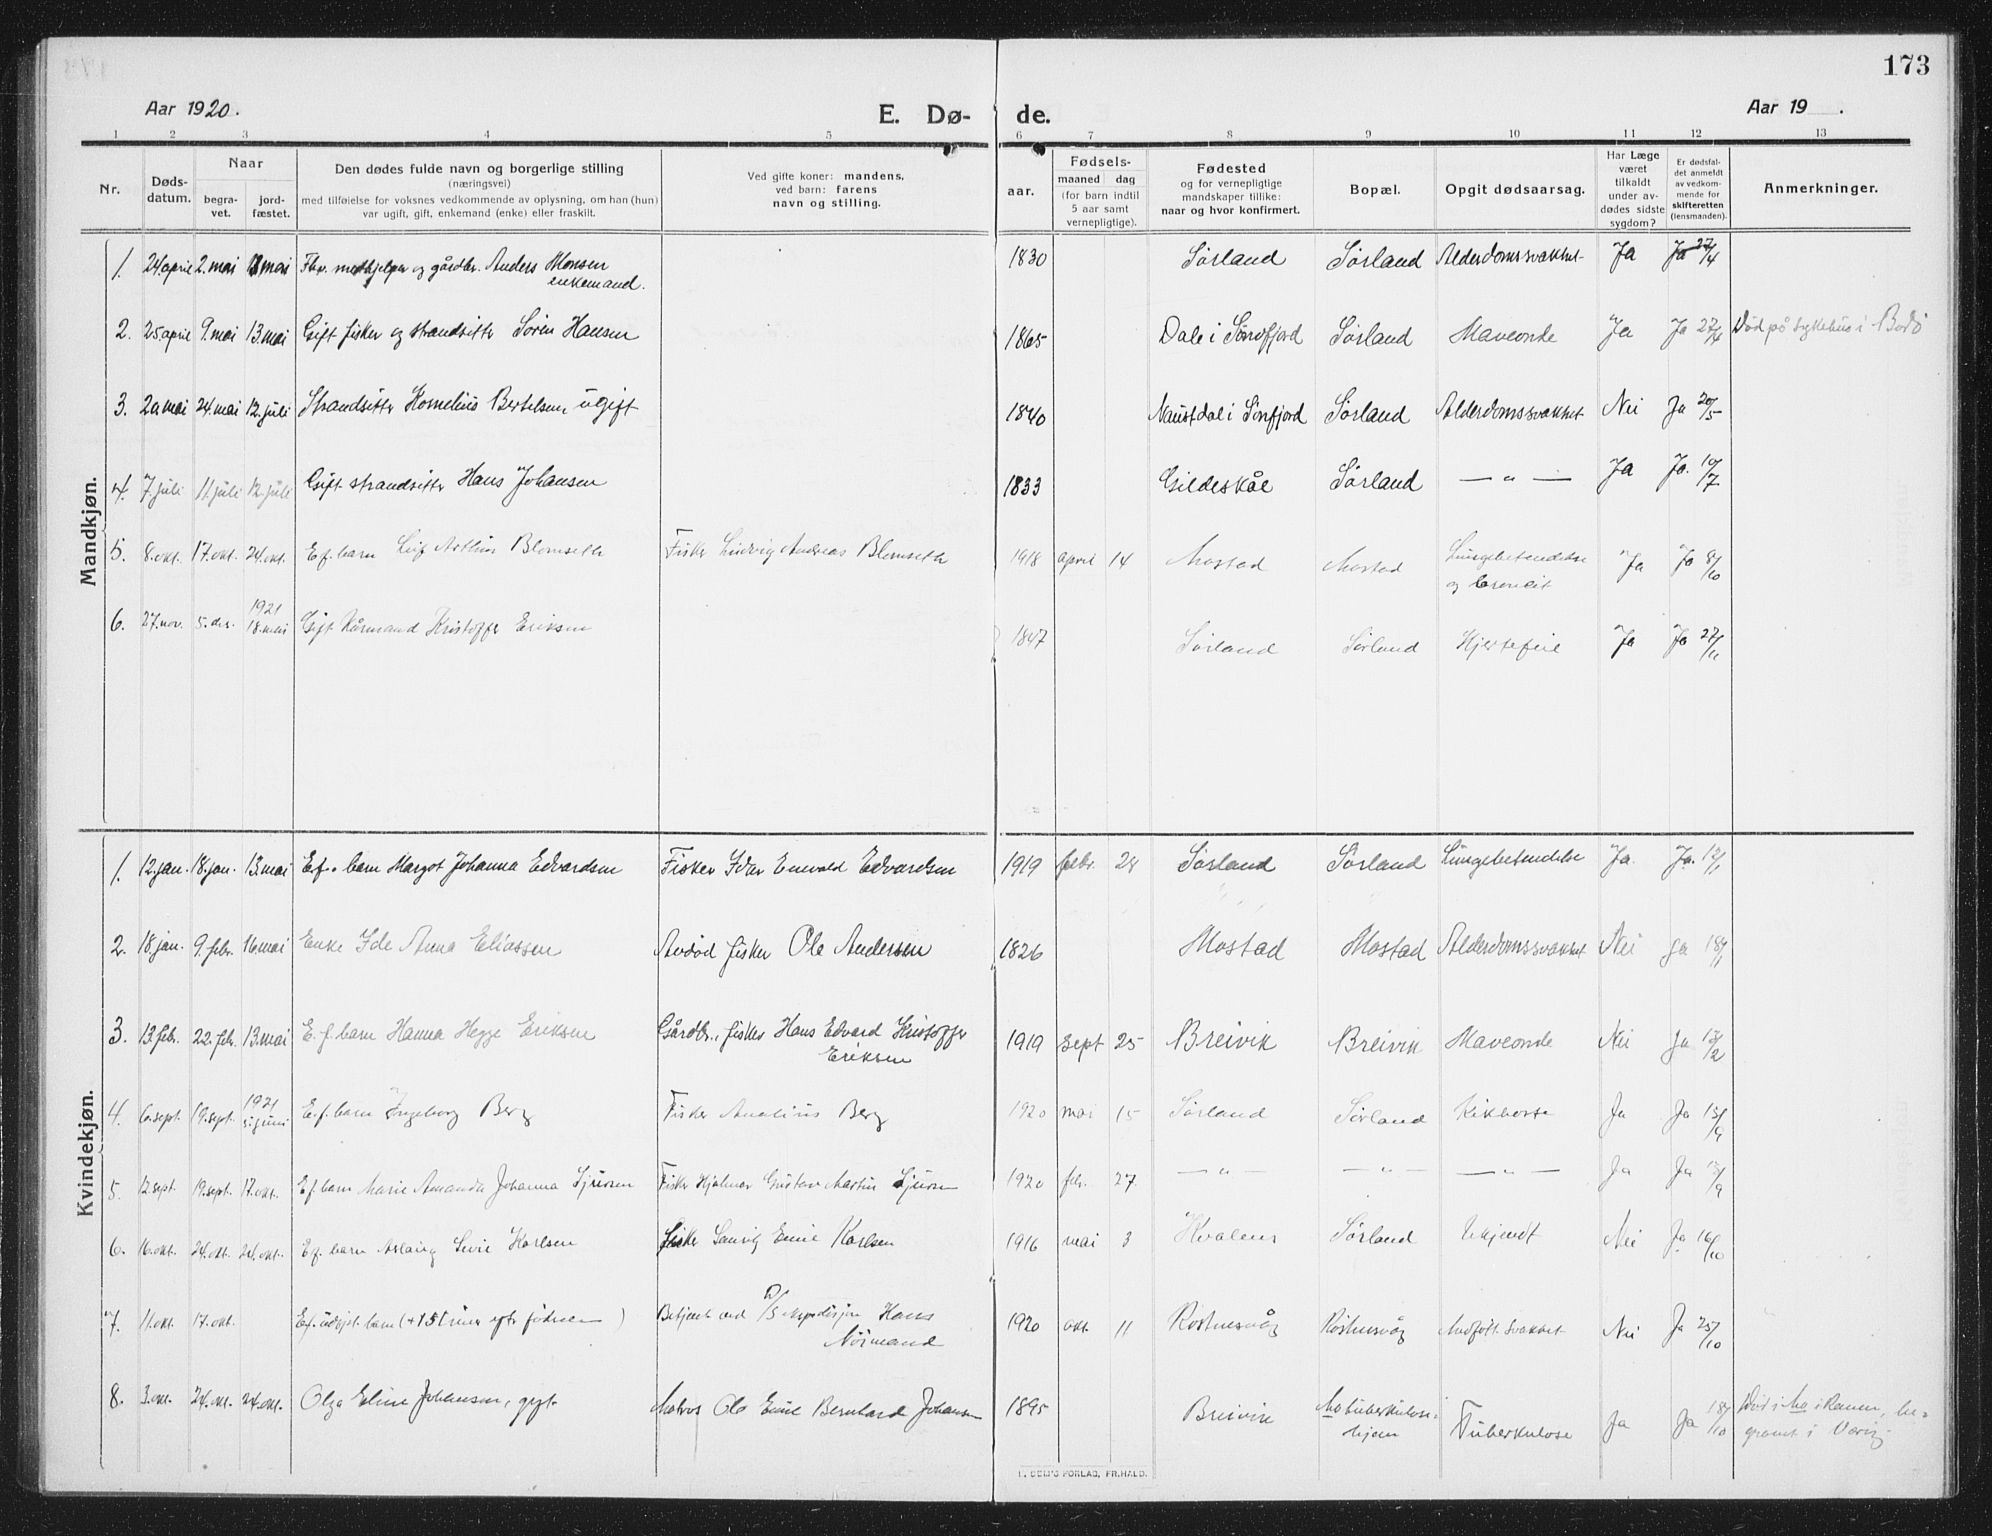 173
Aar 1920.
E. Dø- de.
Aar 19 .
1 2 3 4 5 6 7 8 9 10 11 12 13
Nr. Døds-datum. Naar begra-vet. jord-fæstet. Den dødes fulde navn og borgerlige stilling (næringsvei) med tilføielse for voksnes vedkommende av oplysning, om han (hun) var ugift, gift, enkemand (enke) eller fraskilt. Ved gifte koner: mandens, ved barn: farens navn og stilling. aar. Fødsels- maaned dag (for barn indtil 5 aar samt vernepligtige). Fødested og for vernepligtige mandskaper tillike: naar og hvor konfirmert. Bopæl. Opgit dødsaarsag. Har Læge været tilkaldt under av-dødes sidste sygdom? Er dødsfal-det anmeldt av vedkom-mende for skifteretten (lensmanden). Anmerkninger.
Mandkjøn.
1. 24 april 2. mai mai Fhv. medhjelper og gårdbr. Anders Monsen enkemand. 1830 Sørland Sørland Alderdomssvakhet Ja Ja 27/4
2. 25. april 9. mai 13. mai Gift fisker og strandsitter Søren Hansen 1865 Dale i Søndfjord Sørland Maveonde Ja Ja 27/4 Død på sykehus i Bodø
3. 20 mai 24 mai 12. juli Strandsitter Kornelius Bertelsen ugift 1840 Naustdal i Sønfjord Sørland Alderdomssvakhet Nei Ja 20/5
4. 7. juli 11. juli 12. juli Gift strandsitter Hans Johansen 1833 Gildeskål Sørland — " — Ja Ja. 10/7
5. 8. okt. 17. okt. 24. okt. E. f. barn Leif Arthur Blomseth Fisker Ludvig Andreas Blomseth 1918 april 14 Mostad Mostad Lungebetendelse og Ja Ja 8/10
6. 27. nov. 5. des. 1921 18. mai Gift Kårmand Kristoffer Eriksen 1847 Sørland Sørland Hjertefeil Ja Ja 27/11
Kvindekjøn.
1. 12. jan. 18. jan. 13. mai E. f. barn Margot Johanna Edvardsen Fisker Idar Enevald Edvardsen 1919 febr. 28 Sørland Sørland Lungebetendelse Ja. Ja. 12/1
2. 18 jan. 9. febr. 16. mai Enke Ide Anna Eliassen Avdød fisker Ole Andersen 1826 Mostad Mostad Alderdomssvakhet Nei Ja 18/1
3. 13. febr. 22. febr. 13. mai E. f. barn Hanna Hegge Eriksen Gårdbr., fisker Hans Edvard Kristoffer Eriksen 1919 sept 25 Breivik Breivik Maveonde Nei Ja 13/2
4. 6. sept. 19. sept. 1921 5. juni E. f. barn Ingeborg Berg Fisker Berg 1920 mai 15 Sørland Sørland Kikhoste Ja Ja 13/9
5. 12. sept. 19. sept. 17. okt. E. f. barn Marie Amanda Johanna Sjursen Fisker Hjalmar Gustav Martin Sjursen 1920 febr. 27. — " — — " — — " — Ja Ja 13/9
6. 16. okt. 24. okt. 24. okt. E. f. barn Aslaug Karlsen Fisker Emil Karlsen 1916 mai 3 Sørland Ukjendt Nei Ja 16/10
7. 11. okt. 17. okt. E. f. udøpt barn ( 15 timer efter fødselen ) Betjent ved Hans Normand 1920 okt. 11 Røstnesvåg Røstnesvåg Medfødt svakhet Nei Ja 25/10
8. 3. okt. 24. okt. 24. okt. Olga Eline Johansen, gift. Matros Ole Emil Bernhard Johansen 1895 Breivik Mo tuberkulose-hjem Tuberkulose Ja Ja 18/10 Død i Mo i Ranen, be-gravet i Værøy.